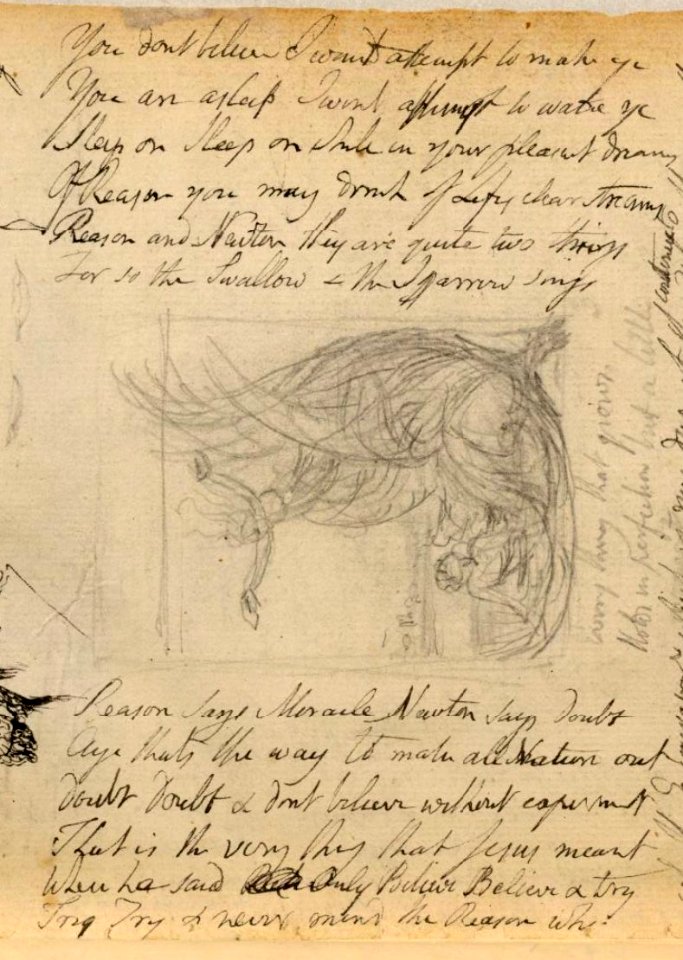 You dont believe I wont attempt to make ye
You are asleep I wont attempt to wake ye
Sleep on Sleep on while in your pleasant dreams
Of Reason you may drink of Lifes clear streams
Reason and Newton they are quite two things
For so the Swallow & the Sparrow sings
every thing that grows
Holds in perfection but a little
Reason says Miracle Newton says Doubt
Aye thats the way to make all Nature out
Doubt Doubt & dont believe without experiment
That is the very thing that Jesus meant
When he said Only Believe Believe & try
Try Try & never mind the Reason why